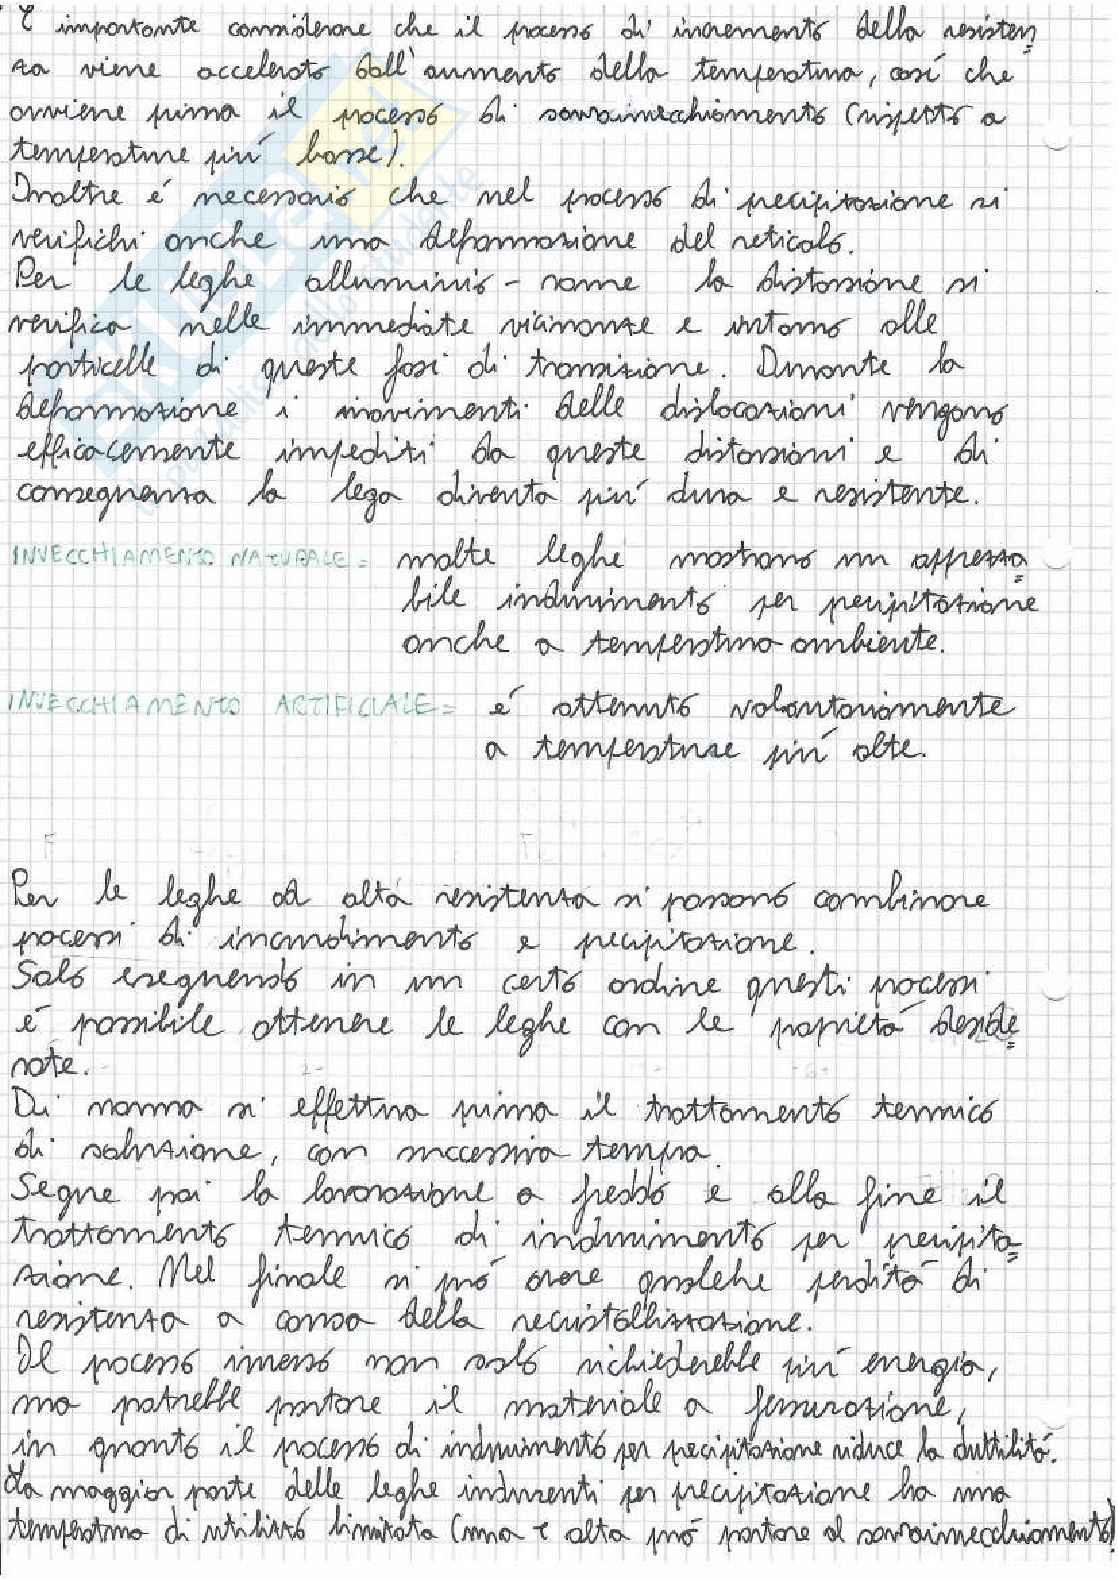 È importante considerare che il processo di incremento della resisten=
za viene accelerato dall'aumento della temperatura, così che
avviene prima il processo di sovrainvecchiamento (rispetto a
temperature più basse).
Inoltre é necessario che nel processo di precipitazione si
verifichi anche una deformazione del reticolo.
Per le leghe alluminio - rame la distorsione si
verifica nelle immediate vicinanze e intorno alle
particelle di queste fasi di transizione. Durante la
deformazione i movimenti delle dislocazioni vengono
efficacemente impediti da queste distorsioni e di
conseguenza la lega diventa più dura e resistente.
INVECCHIAMENTO NATURALE = molte leghe mostrano un apprezza=
bile indurimento per precipitazione
anche a temperatura ambiente.
INVECCHIAMENTO ARTIFICIALE = é ottenuto volontariamente
a temperature più alte.
Per le leghe ad alta resistenza si possono combinare
processi di incrudimento e precipitazione.
Solo eseguendo in un certo ordine questi processi
é possibile ottenere le leghe con le proprietà deside=
rate.
Di norma si effettua prima il trattamento termico
di soluzione, con successiva tempra.
Segue poi la lavorazione a freddo e alla fine il
trattamento termico di indurimento per precipita=
zione. Nel finale si può avere qualche perdità di
resistenza a causa della recristallizzazione.
Il processo inverso non solo richiederebbe più energia,
ma potrebbe portare il materiale a fessurazione,
in quanto il processo di indurimento per precipitazione riduce la duttilità.
La maggior parte delle leghe indurenti per precipitazione ha una
temperatura di utilizzo limitata (una T alta può portare al sovrainvecchiamento)